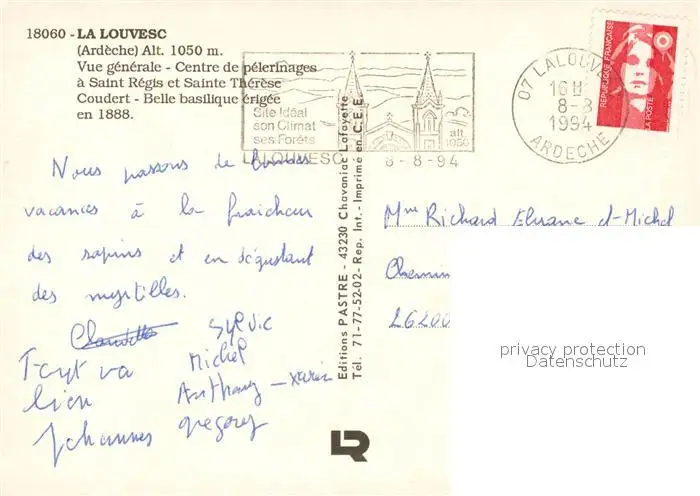 18060 - LA LOUVESC
(Ardèche) Alt. 1050 m.
Vue générale - Centre de pélerinages
à Saint Régis et Sainte Thérèse
Coudert - Belle basilique érigée
en 1888.
Site Idéal
son Climat
ses Forêts
alt.
1050
LALOUVESC 8-8-94
07 LALOUVESC
16H
8-8
1994
ARDECHE
REPUBLIQUE FRANÇAISE
LA POSTE
Nous passons de bonnes
vacances à la fraicheur
des sapins et en dégustant
des myrtilles.
Sylvie
Michel
Anthony - Xavier
Johannes Gregory
Editions PASTRE - 43230 Chavaniac Lafayette
Tél. 71-77-52-02 - Rep. Int. - Imprimé en C.E.E.
Mme Richard et Michel
Chemin
26200
privacy protection
Datenschutz
LR